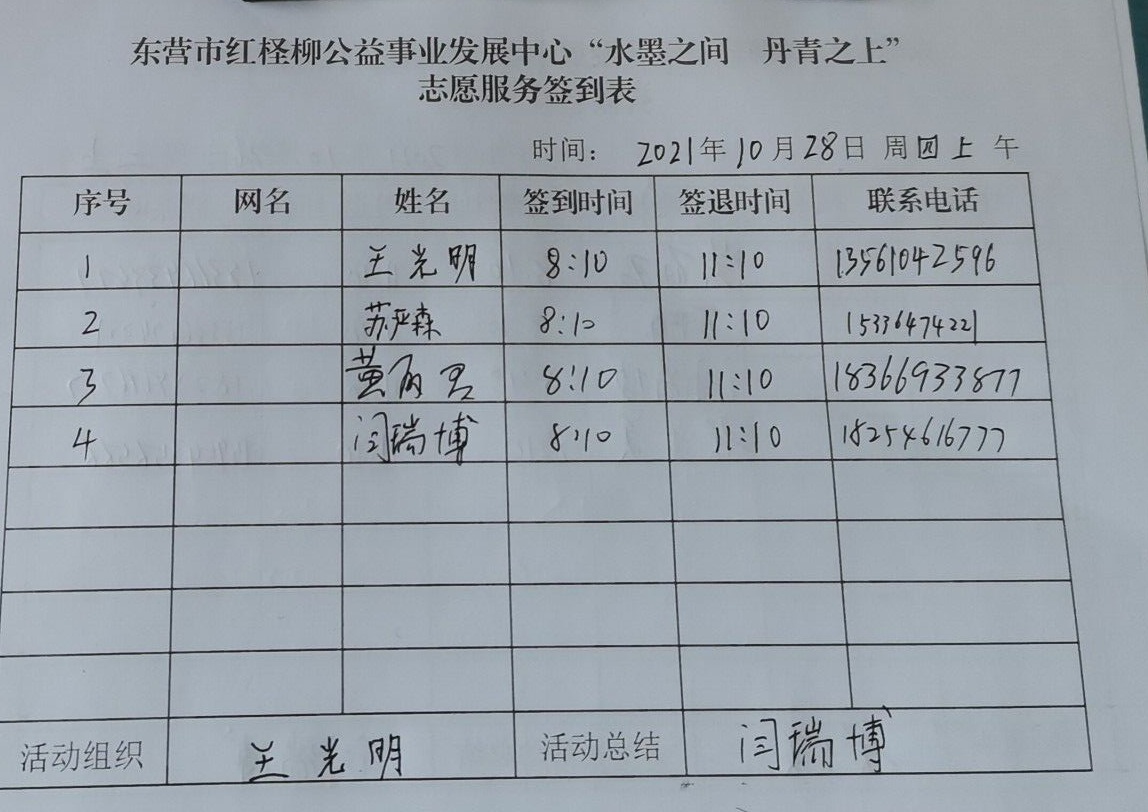 东营市红柽柳公益事业发展中心“水墨之间 丹青之上”
志愿服务签到表
时间： 2021年10月28日 周四上午
序号 网名 姓名 签到时间 签退时间 联系电话
1 王光明 8:10 11:10 13561042596
2 苏严森 8:10 11:10 15336474221
3 黄丽君 8:10 11:10 18366933877
4 闫瑞博 8:10 11:10 18254616777
活动组织 王光明 活动总结 闫瑞博